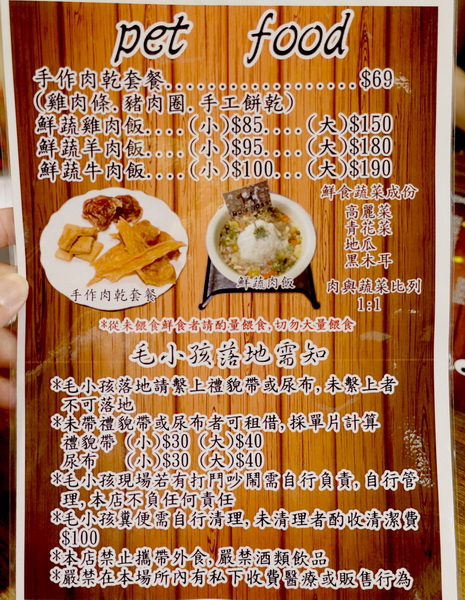 pet food
手作肉乾套餐..................$69
(雞肉條.豬肉圈.手工餅乾)
鮮蔬雞肉飯....(小)$85....(大)$150
鮮蔬羊肉飯....(小)$95....(大)$180
鮮蔬牛肉飯....(小)$100...(大)$190
鮮食蔬菜成份
高麗菜
青花菜
地瓜
黑木耳
肉與蔬菜比列
1:1
手作肉乾套餐
鮮蔬肉飯
*從未餵食鮮食者請酌量餵食,切勿大量餵食
毛小孩落地需知
*毛小孩落地請繫上禮貌帶或尿布,未繫上者
不可落地
*未帶禮貌帶或尿布者可租借,採單片計算
禮貌帶 (小)$30 (大)$40
尿布 (小)$30 (大)$40
*毛小孩現場若有打鬥吵鬧需自行負責,自行管
理,本店不負任何責任
*毛小孩糞便需自行清理,未清理者酌收清潔費
$100
*本店禁止攜帶外食,嚴禁酒類飲品
*嚴禁在本場所內有私下收費醫療或販售行為